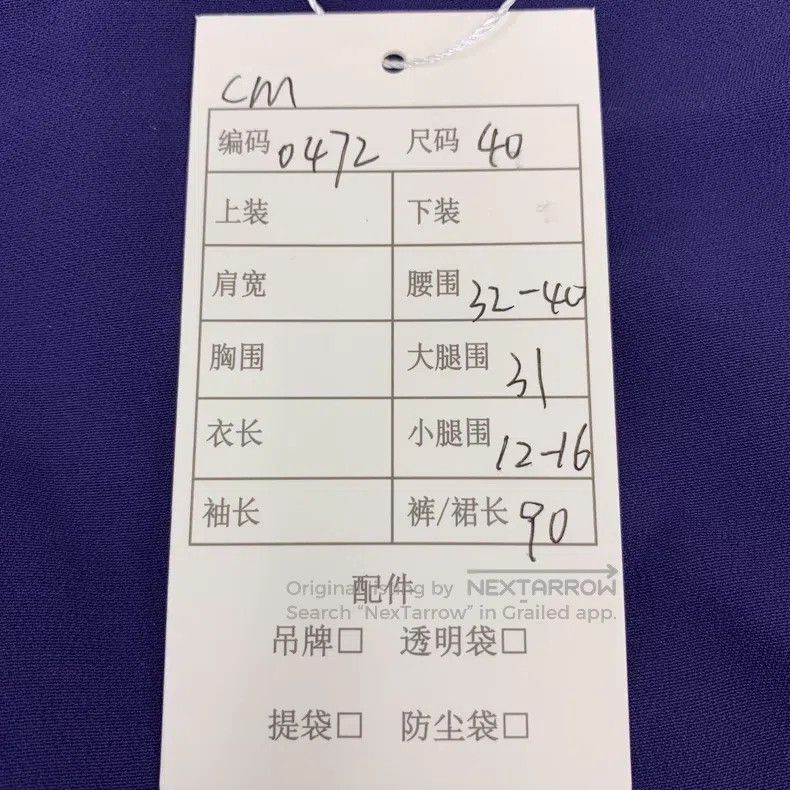 cm
编码 0472 尺码 40
上装 下装
肩宽 腰围 32-40
胸围 大腿围 31
衣长 小腿围 12-16
袖长 裤/裙长 90
配件
Original listing by NEXTARROW
Search “NexTarrow” in Grailed app.
吊牌□ 透明袋□
提袋□ 防尘袋□